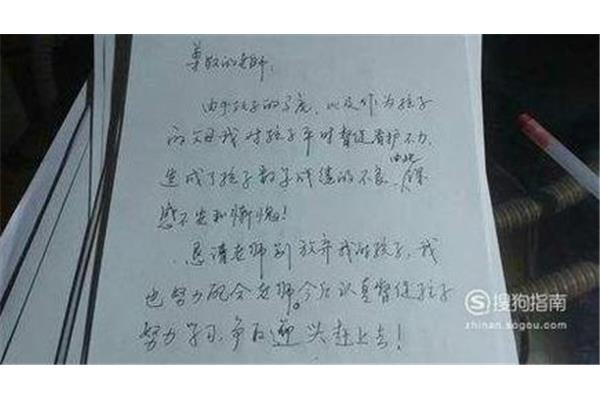 尊敬的老师:
由于孩子的了魇,以及作为孩子
的父母我对孩子平时督促看护不力,
造成了孩子数学成绩的不良,由此深
感不安和惭愧!
恳请老师别放弃我的孩子,我
也努力配合老师。今后认真督促孩子
努力学习,争取迎头赶上去!
搜狗指南
zhinan.sogou.com